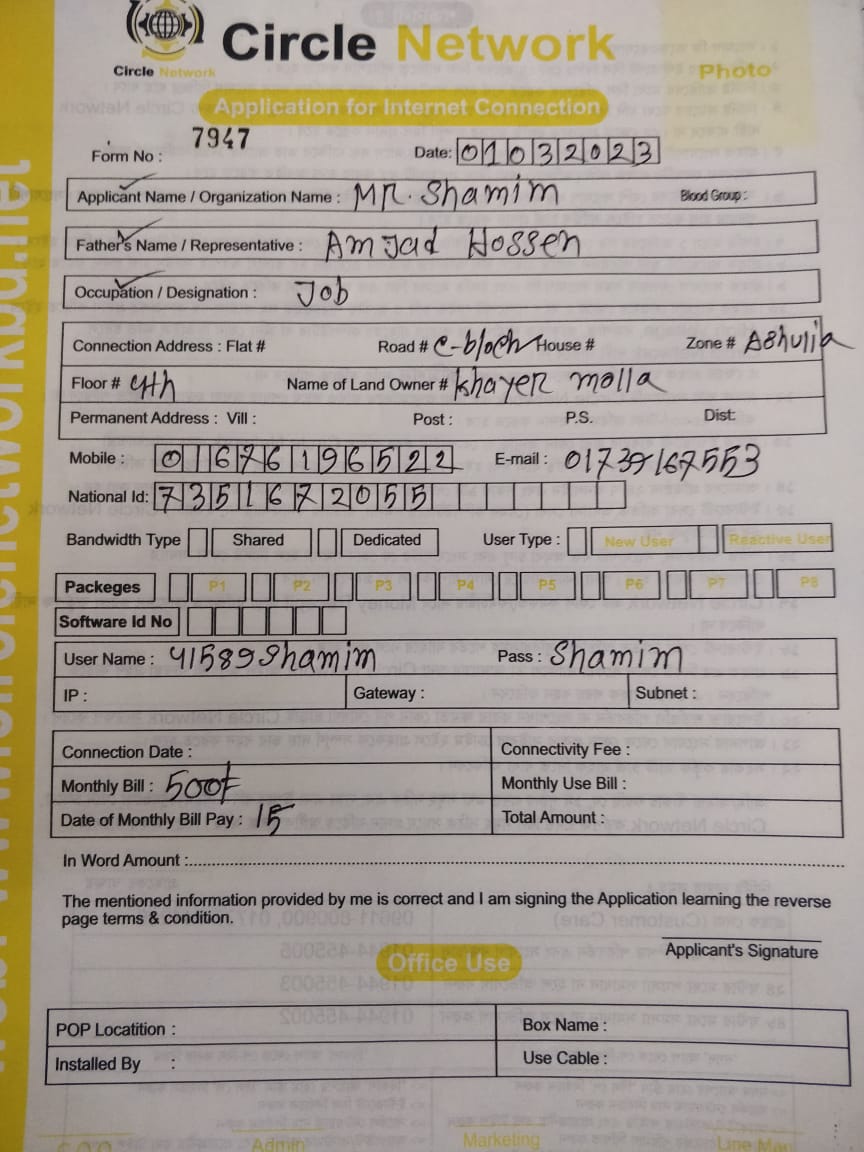 Circle Network
Circle Network
Photo
Application for Internet Connection
Form No : 7947 Date: 01032023
Applicant Name / Organization Name : MR. Shamim Blood Group :
Father's Name / Representative : Amjad Hossen
Occupation / Designation : Job
Connection Address : Flat # Road # C-bloch House # Zone # Ashulia
Floor # 4th Name of Land Owner # Khayer molla
Permanent Address : Vill : Post : P.S. Dist:
Mobile : 01676196522 E-mail : 01739167553
National Id: 7351672055
Bandwidth Type Shared Dedicated User Type : New User Reactive User
Packeges P1 P2 P3 P4 P5 P6 P7 P8
Software Id No
User Name : 41589Shamim Pass : Shamim
IP : Gateway : Subnet :
Connection Date : Connectivity Fee :
Monthly Bill : 500 Monthly Use Bill :
Date of Monthly Bill Pay : 15 Total Amount :
In Word Amount :
The mentioned information provided by me is correct and I am signing the Application learning the reverse
page terms & condition.
Applicant's Signature
Office Use
POP Locatition : Box Name :
Installed By : Use Cable :
Admin Marketing Line Man